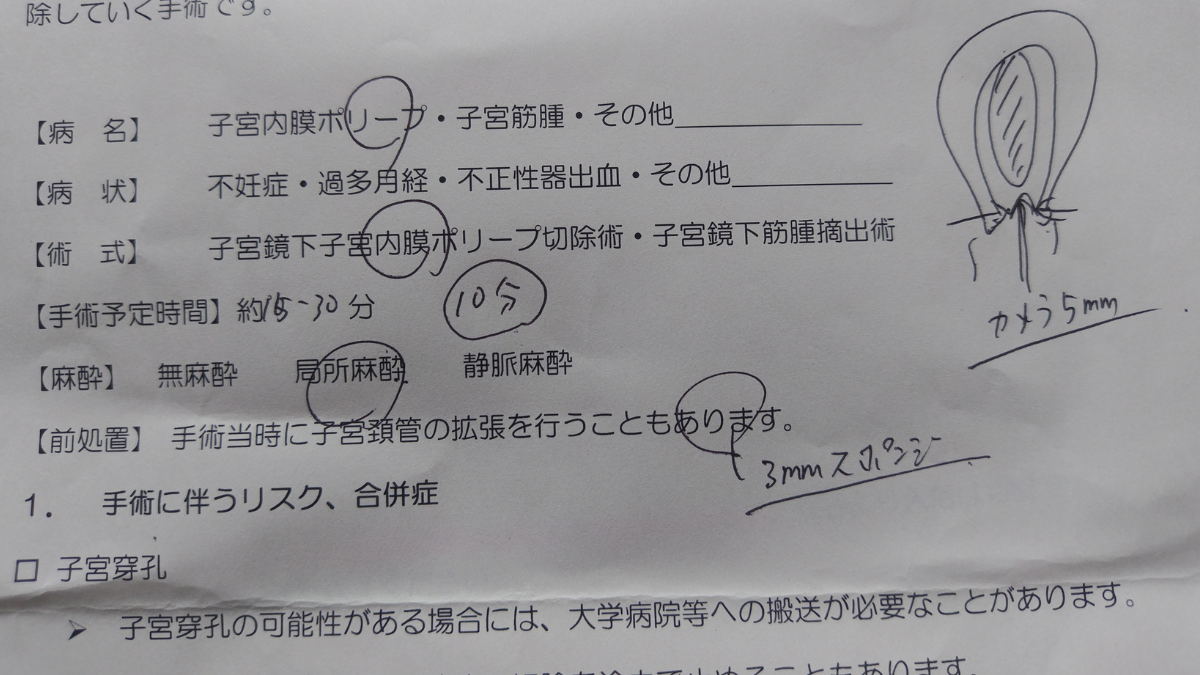 除していく手術です。
【病　名】　子宮内膜ポリープ・子宮筋腫・その他＿＿＿＿＿＿
【病　状】　不妊症・過多月経・不正性器出血・その他＿＿＿＿＿＿
【術　式】　子宮鏡下子宮内膜ポリープ切除術・子宮鏡下筋腫摘出術
【手術予定時間】約15-30分　10分
カメラ5mm
【麻酔】　無麻酔　局所麻酔　静脈麻酔
【前処置】　手術当時に子宮頚管の拡張を行うこともあります。
3mmスポンジ
1．　手術に伴うリスク、合併症
□ 子宮穿孔
➢ 子宮穿孔の可能性がある場合には、大学病院等への搬送が必要なことがあります。
こともあります。